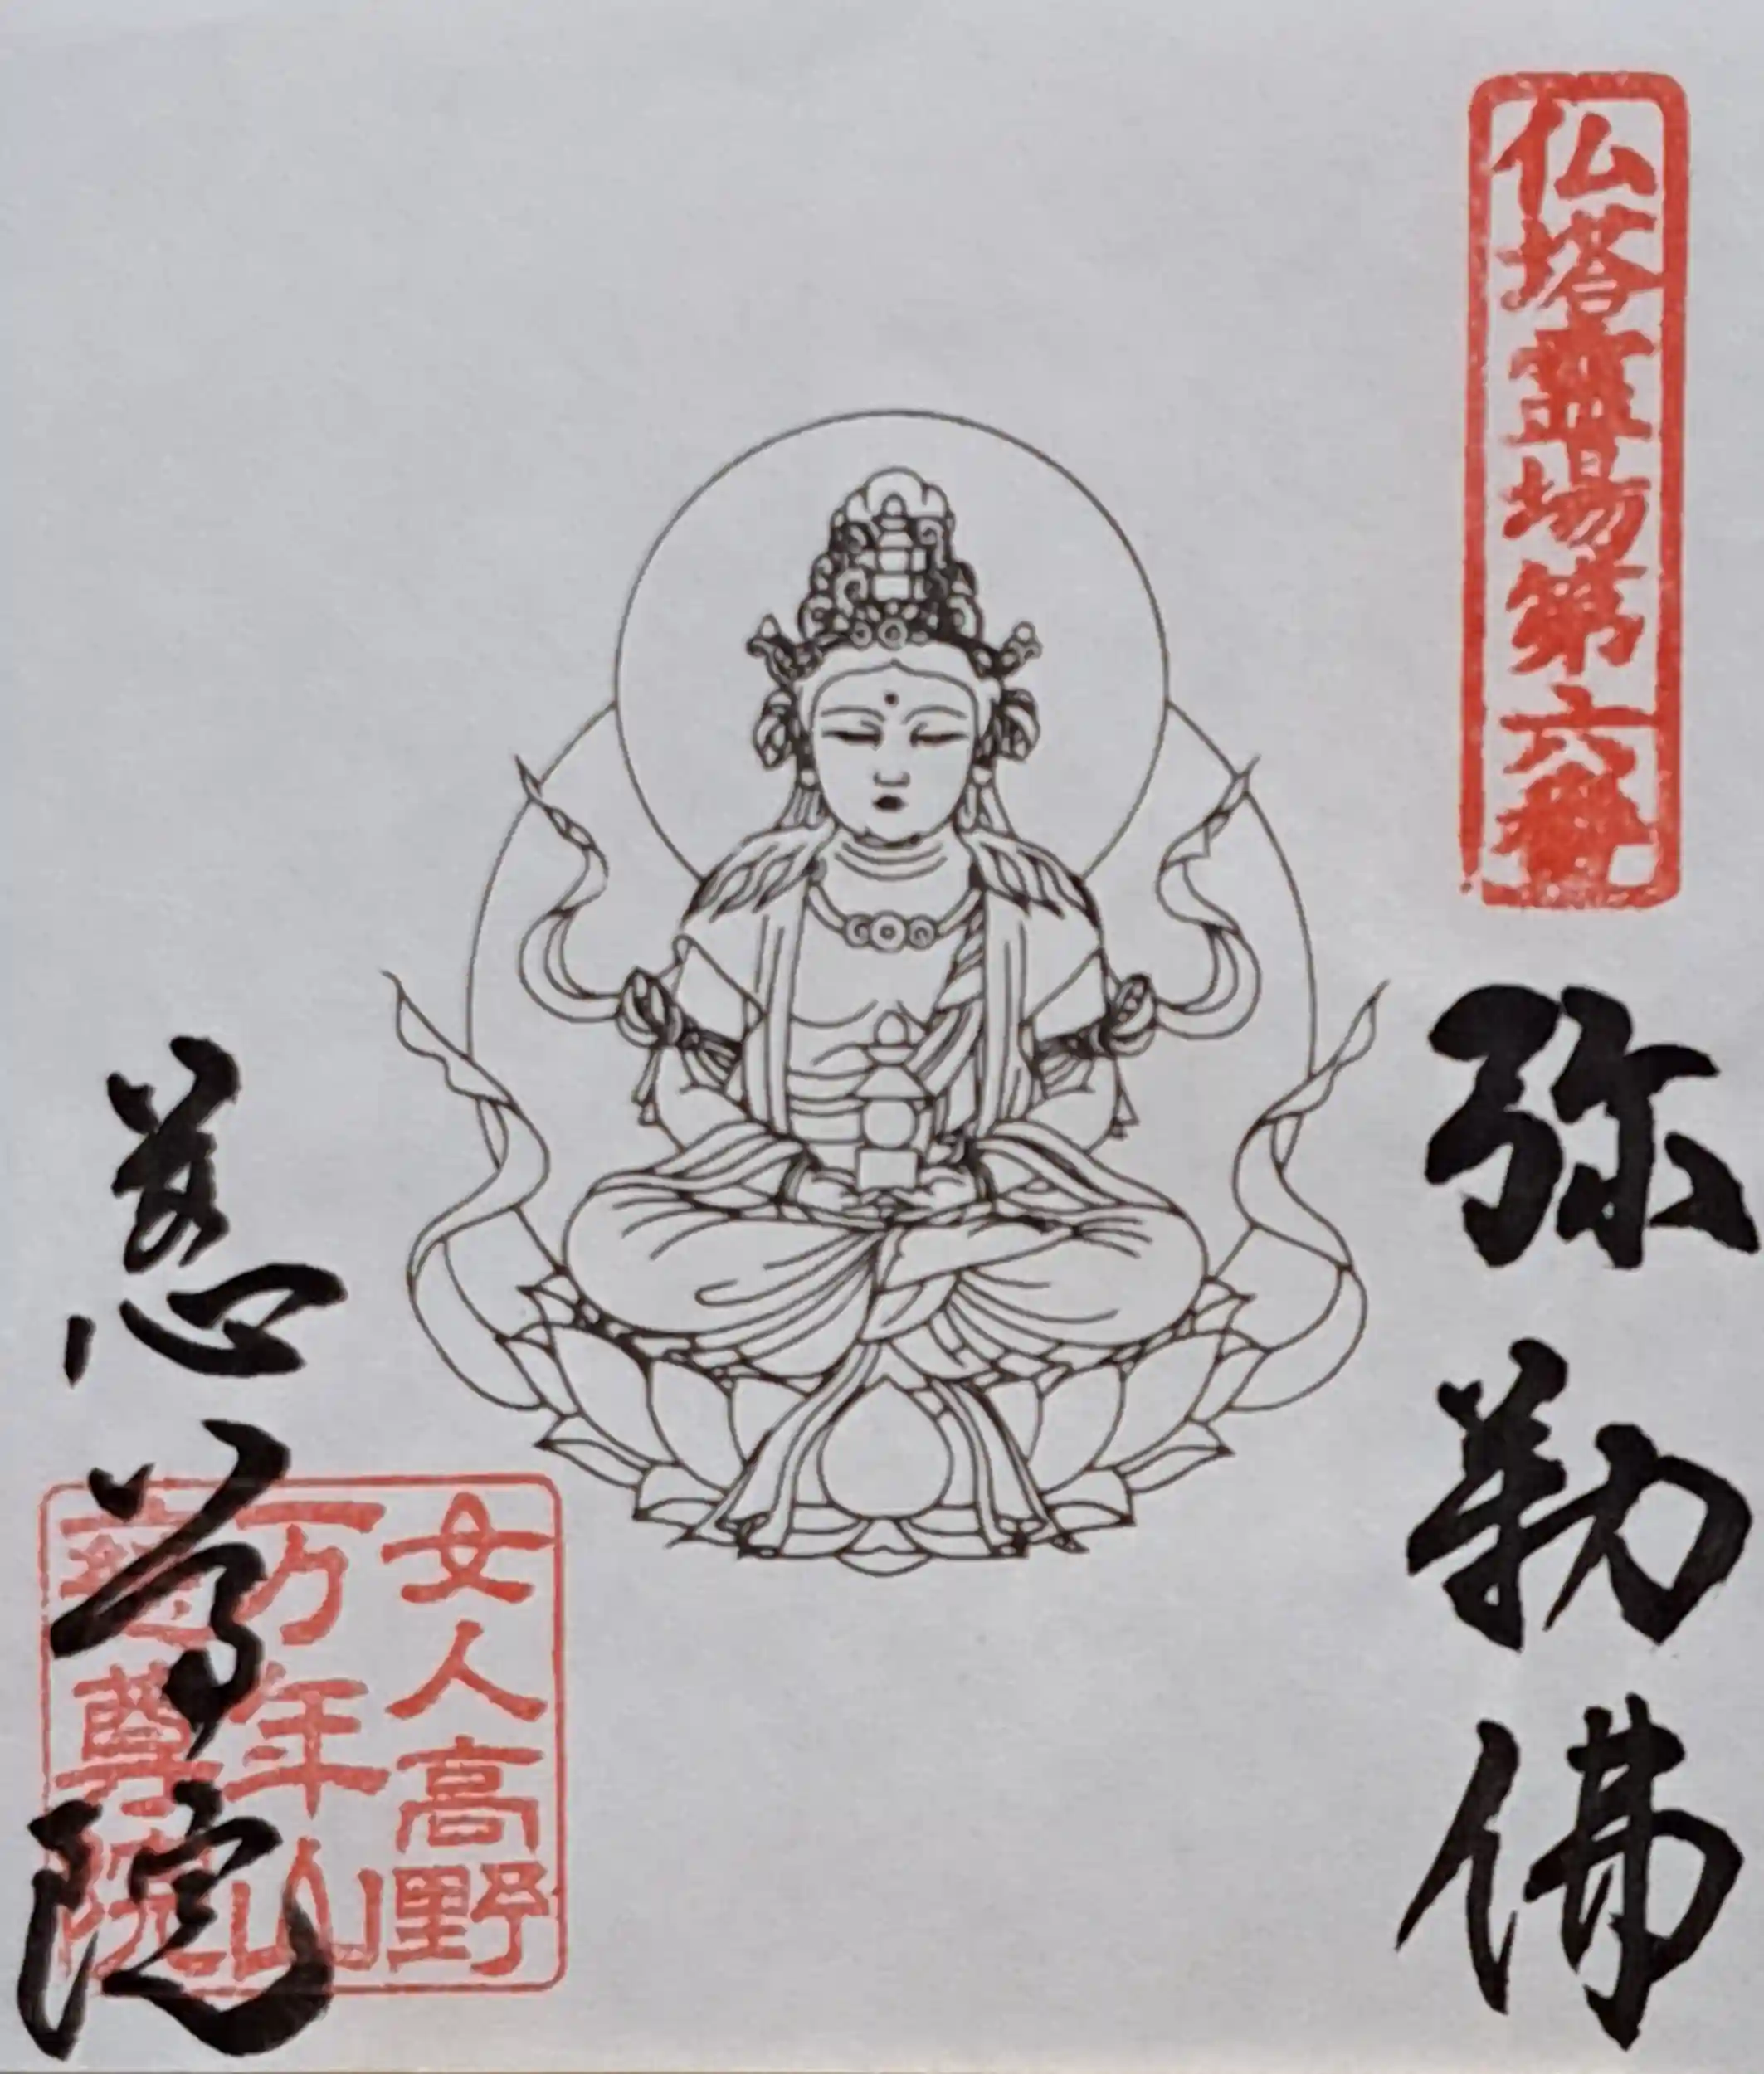 仏塔霊場第六番
弥勒佛
女人高野
万年山
慈尊院
慈尊院